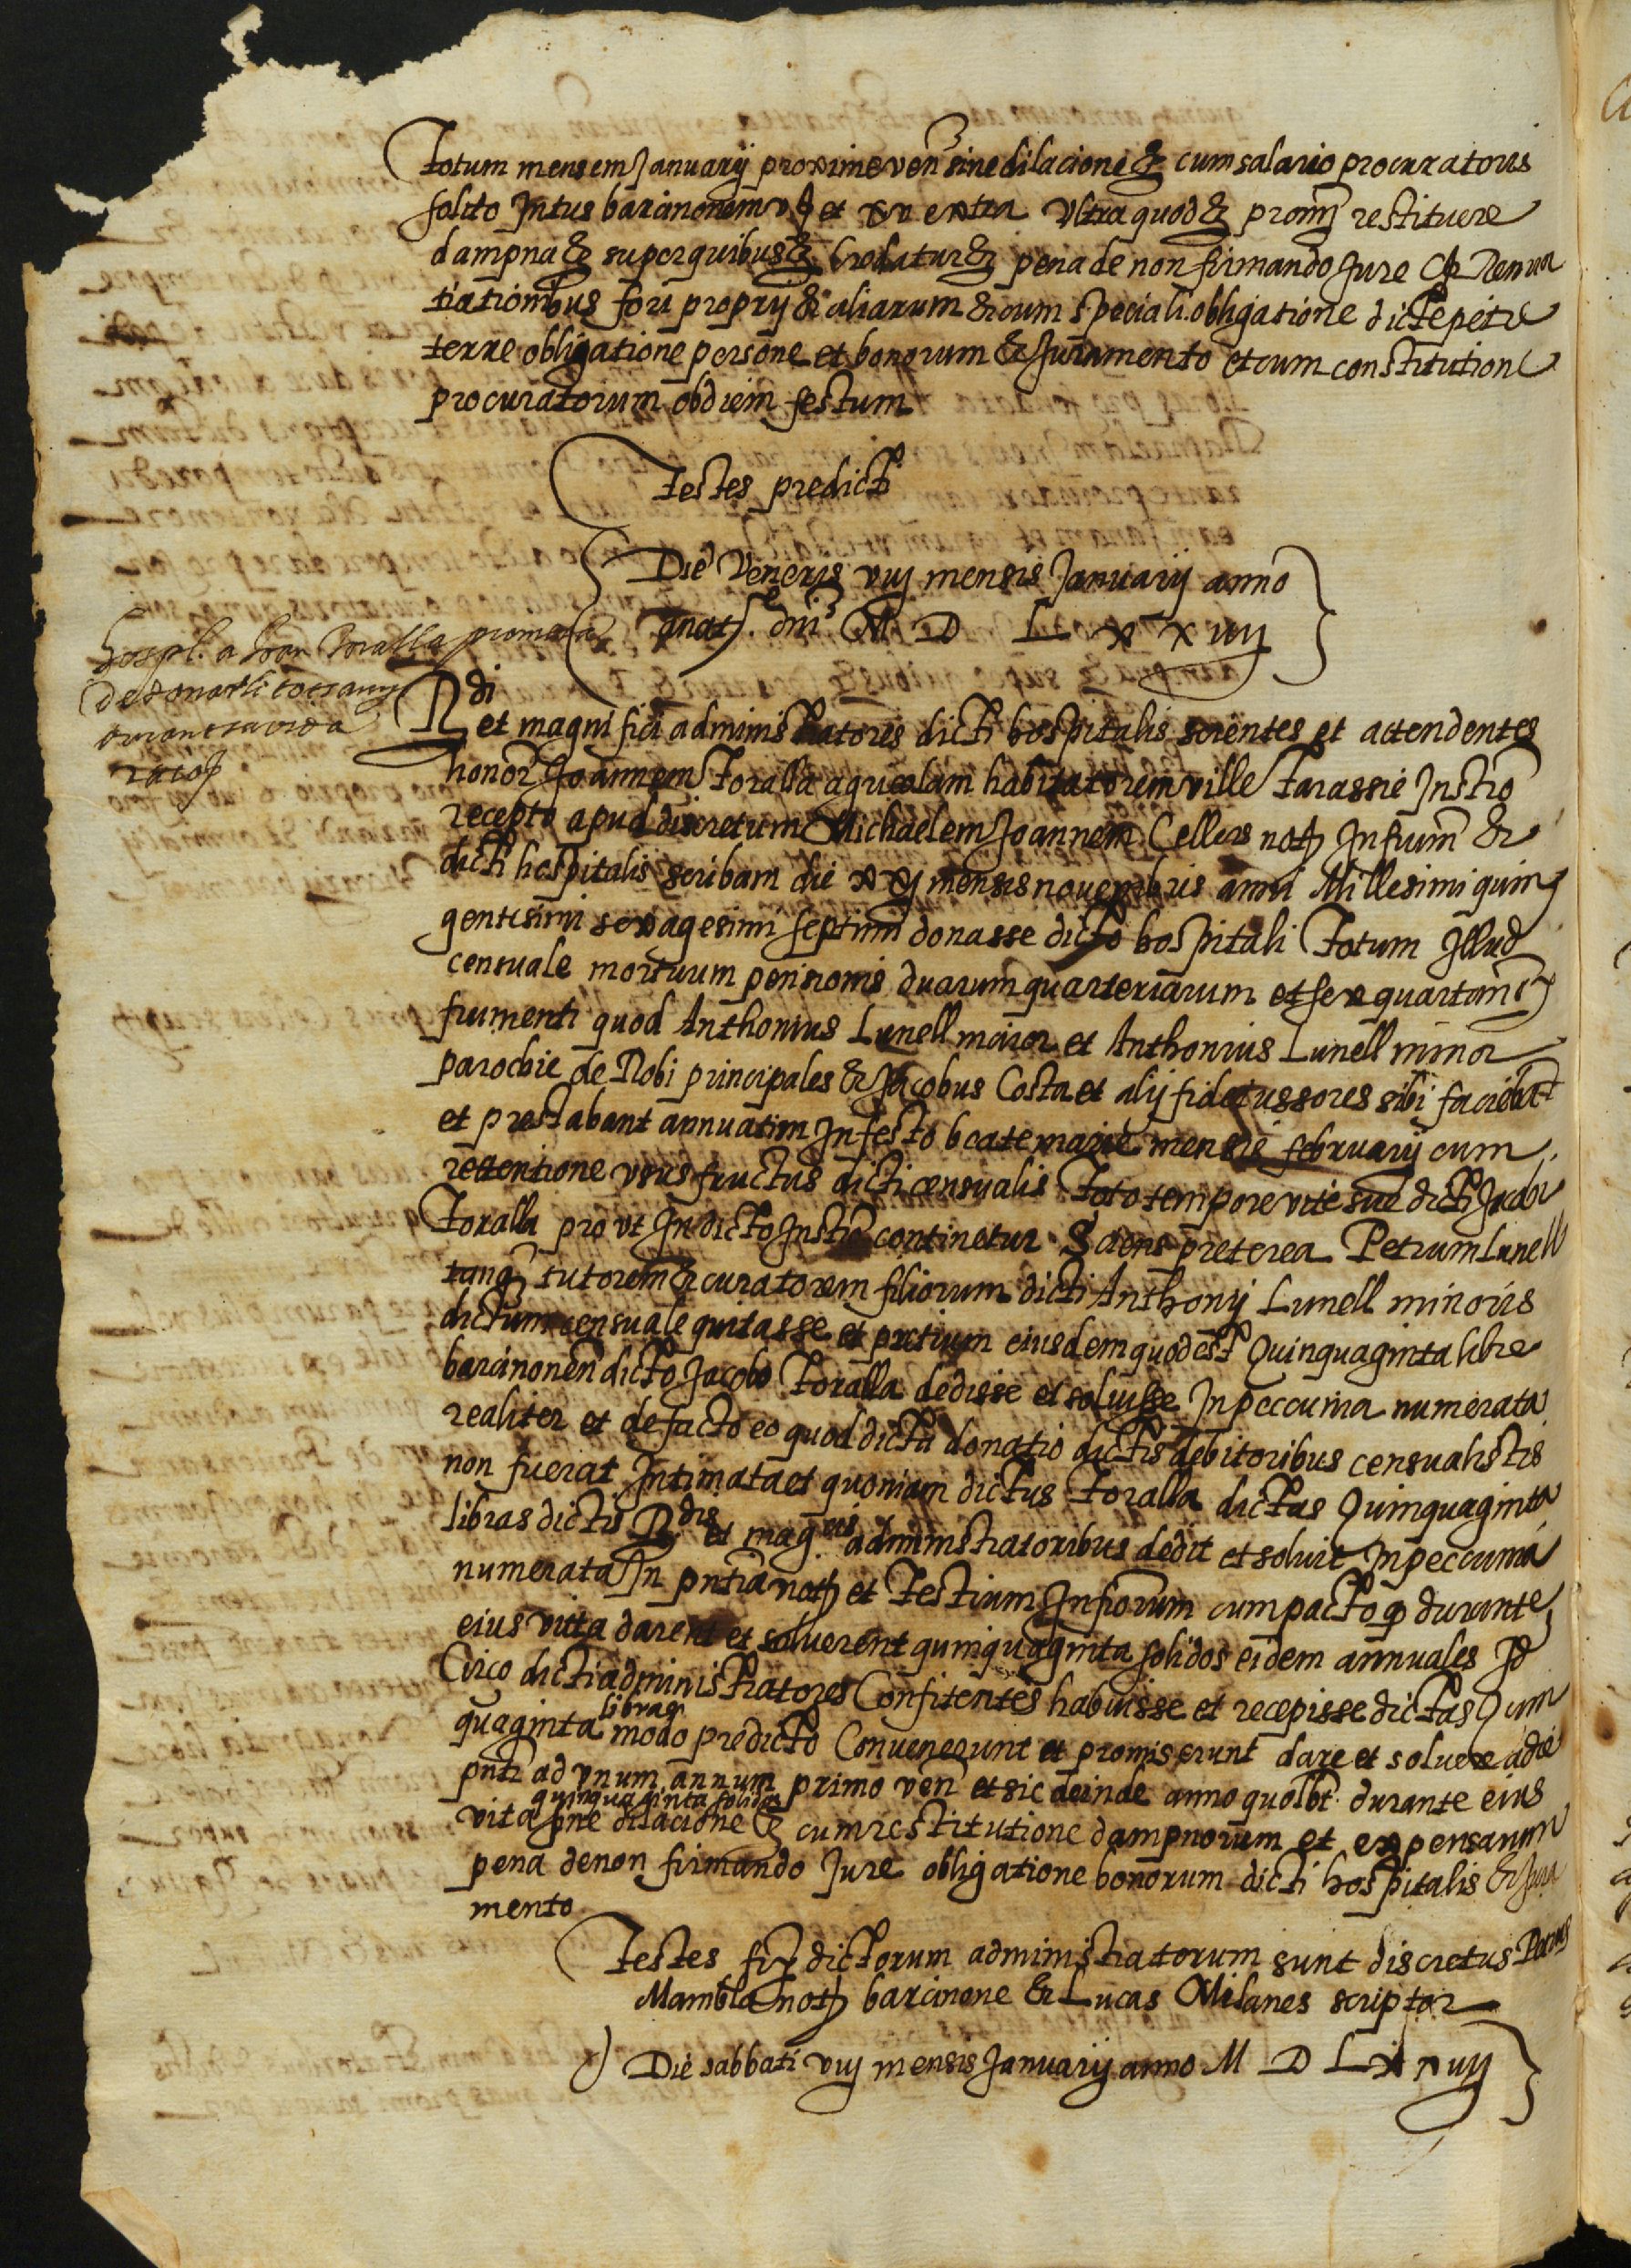 Totum mensem Januarij proxime ven sine dilacione & cum salario procuratoris
solito Intus barcinonem v s et xv extra Vltra quod & promj restituere
dampna & super quibus & Credatur & pena de non firmando Jure & Renun
tiationibus fori proprij & aliarum & cum speciali obligatione dicte petie
terre obligatione persone et bonorum & Juramento et cum constitutione
procuratorum ob diem festum
Testes predicti
Die Veneris vij mensis Januarij anno
anat. dni M D L x x viij
hospl. a Joan Toralla promesa
de donarli
durant sa vida
Rdi et magnifici administratores dicti hospitalis scientes et attendentes
honor Joannem Toralla agricolam habitatorem ville Tarassie Instro
recepto apud discretum Michaelem Joannem Cellers not Infrum &
dicti hospitalis scribam die xxj mensis nouembris anni Millesimi quin
gentesimi sexagesimi septimi donasse dicto hospitali Totum Illud
censuale mortuum pensionis duarum quarteriarum et sex quartan
frumenti quod Anthonius Lunell maior et Anthonius Lunell minor
parochie de Robi principales & Jacobus Costa et alij fideiussores sibi faciebāt
et prestabant annuatim In festo beate marie mensis februarij cum
retentione vsus fructus dicti censualis Toto tempore vite sue dicti Jacobi
Toralla pro vt In dicto Instro continetur Sciens preterea Petrum Lunell
tanq tutorem & curatorem filiorum dicti Anthonij Lunell minoris
dictum censuale quitasse et pretium eiusdem quod est Quinquaginta libre
barcinonen dicto Jacobo Toralla dedisse et soluisse In peccunia numerata
realiter et de facto eo quod dicta donatio dictis debitoribus censualistis
non fuerat Intimata et quoniam dictus Toralla dictas Quinquaginta
libras dictis Rdis et magcis administratoribus dedit et soluit In peccunia
numerata In pntia not et Testium Infrorum cum pacto q durante
eius vita darent et soluerent quinquaginta solidos eidem annuales Id
Circo dicti administratores Confitentes habuisse et recepisse dictas Quin
quaginta libras modo predicto Conuenerunt et promiserunt dare et soluere a die
pnti ad vnum annum primo ven et sic deinde anno quolbt durante eius
vita quinquaginta solidos sine dilacione & cum restitutione dampnorum et expensarum
pena de non firmando Jure obligatione bonorum dicti hospitalis & Jura
mento
Testes fix dictorum administratorum sunt discretus Petrus
Mambla not barcinone & Lucas Milanes scriptor
Die sabbati viij mensis Januarij anno M D L x x viij